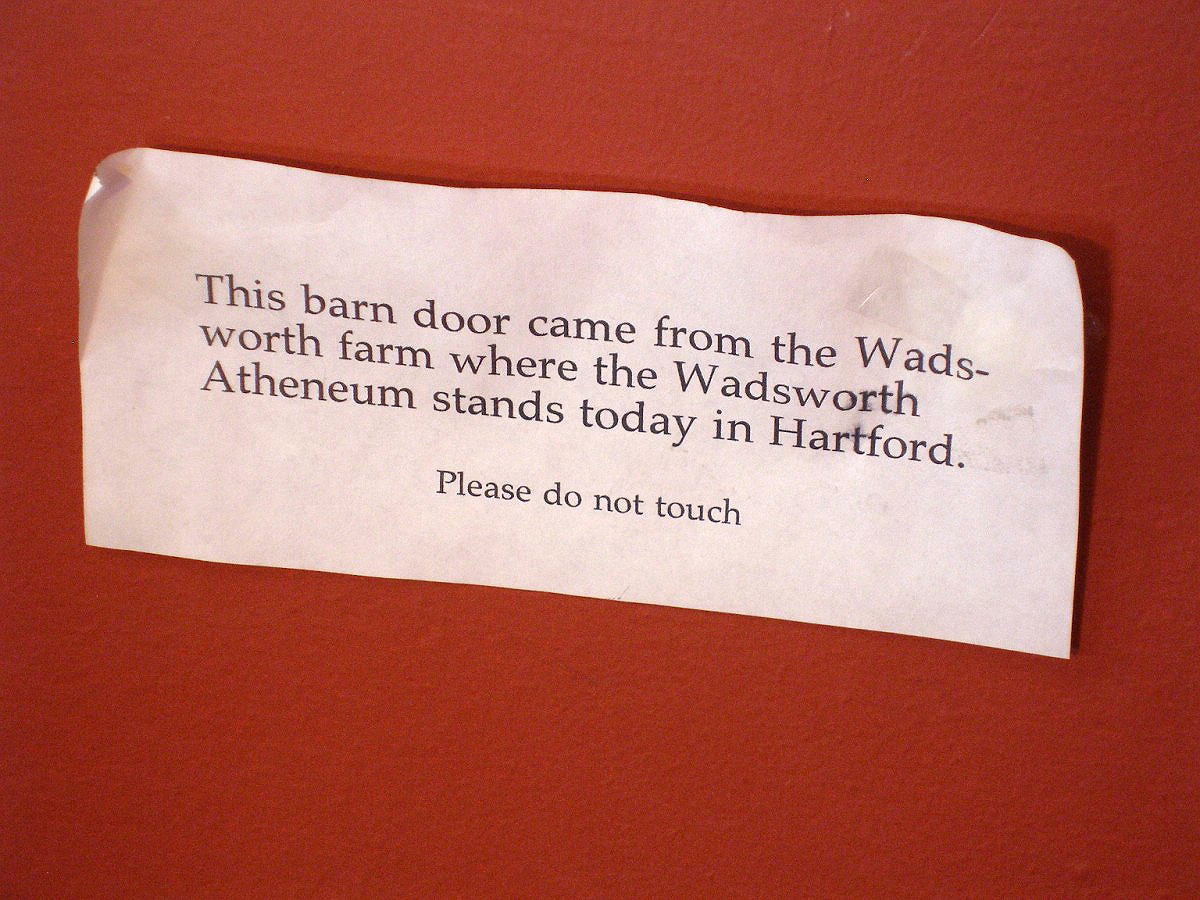 This barn door came from the Wads-
worth farm where the Wadsworth
Atheneum stands today in Hartford.
Please do not touch